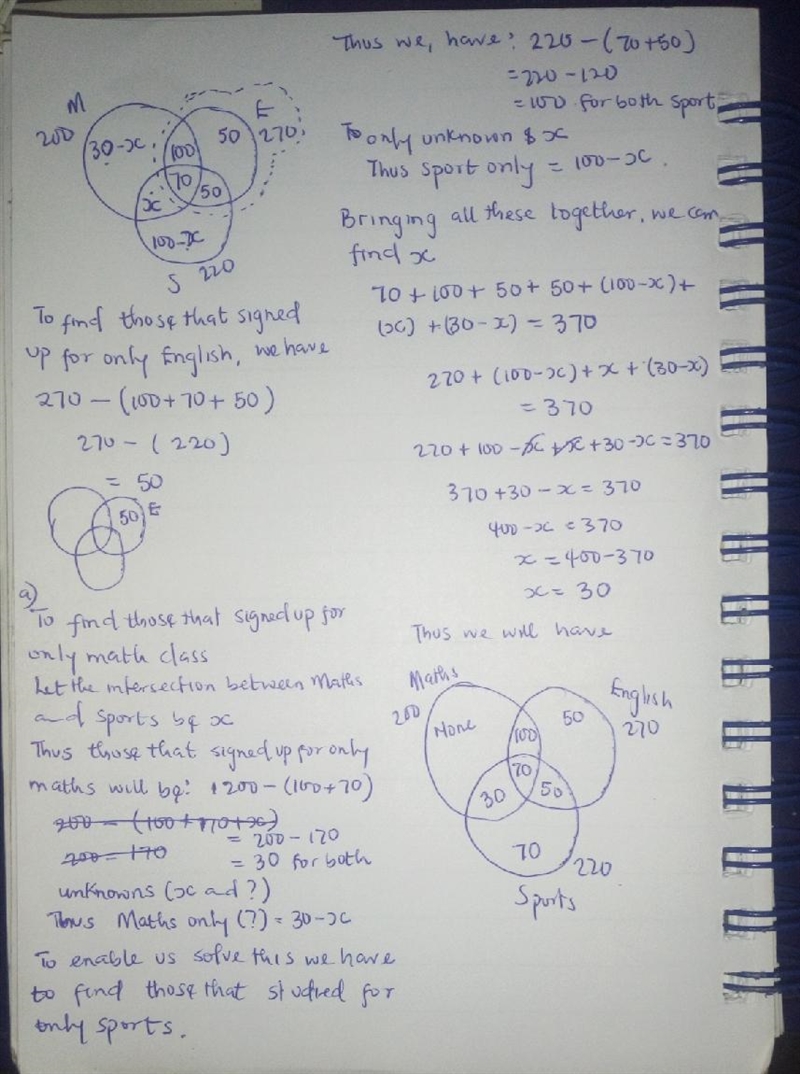 M
200
E
270
30-x
100
50
70
x
50
100-x
S 220
To find those that signed
up for only English, we have
270 - (100+70+50)
270 - (220)
= 50
50 E
a)
To find those that signed up for
only math class
Let the intersection between Maths
and sports be x
Thus those that signed up for only
maths will be: 200 - (100+70)
200 - (100+170+x)
= 200-170
200 = 170
= 30 for both
unknowns (x and ?)
Thus Maths only (?) = 30-x
To enable us solve this we have
to find those that studied for
only sports.
Thus we, have: 220 - (70+50)
= 220 - 120
= 100 for both sport
To only unknown & x
Thus sport only = 100-x.
Bringing all these together, we can
find x
70 + 100 + 50 + 50 + (100-x) +
(x) + (30-x) = 370
270 + (100-x) + x + (30-x)
= 370
270 + 100 - x + x + 30 - x = 370
370 + 30 - x = 370
400 - x = 370
x = 400-370
x = 30
Thus we will have
Maths
200
English
270
None
100
50
70
30
50
70
220
Sports